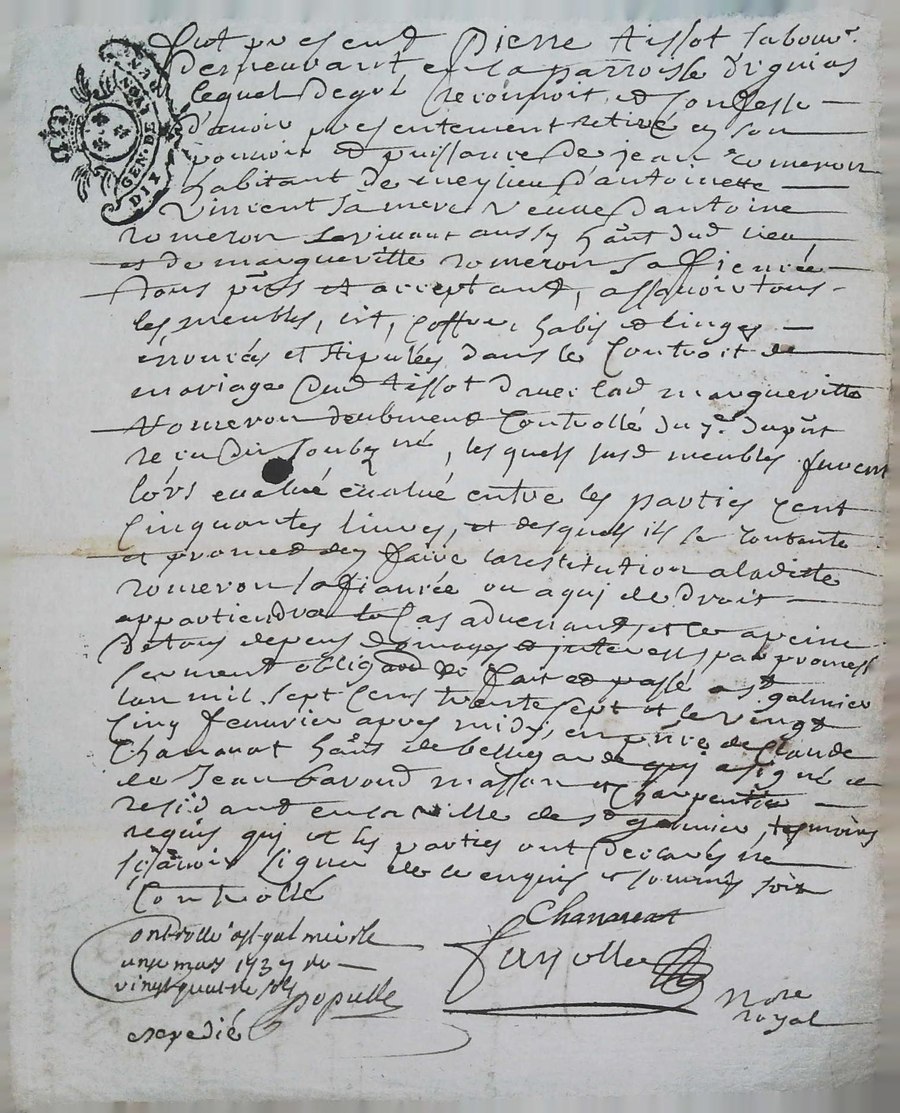 GEN. DE
DIX
fut present Pierre tissot labour.
demeurant en la parroisse
lequel degré reconnoit et confesse
d'avoir presentement retiré en son
pouvoir et puissance de jean romeron
habitant de meylieu d'antoinette
vincent sa mere veuve d'antoine
romeron vivant aussy hañt dud lieu
et de margueritte romeron sa fiencée
tous pñts et acceptant, assavoir tous
les meubles, lit, coffre, habis et linges
enoncés et stipulés dans le contrait de
mariage dud tissot davec lad margueritte
romeron deubment controllé du
receu du soubzné, les quels susd meubles furent
lors evalué evalué entre les parties cent
cinquantes livres, et desquels il se contente
et promed den faire la restitution a laditte
romeron sa fiancée ou a quj de droit
appartiendra le cas advenant, et ce a peine
de tous depens domages et interests par promesse
serment oblig fait et passé a st galmier
lan mil sept cens trente sept et le vingt
cinq fevrier apres midy, en pñce de Claude
Chanavat hañt de bellegarde quj a signé et
de Jean masson et charpentier
residant en la ville de st galmier, tesmoins
requis quj et les parties ont declarés ne
sçavoir signer de ce enquis et sommés soit
controllé
Chanavat
controllé a st galmier le
unze mars 1737 
vingt quatre sols
populle
fayolle
Nore
royal
expedié